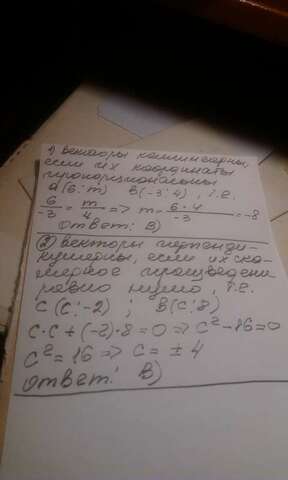 1) Векторы коллинеарны,
если их координаты
пропорциональны
a(6; m) b(-3; 4), т.е.
6/-3 = m/4 => m = 6·4/-3 = -8
Ответ: В)
2) векторы перпенди-
кулярны, если их ска-
лярное произведени
равно нулю, т.е.
c(c; -2); b(c; 8)
c·c + (-2)·8 = 0 => c² - 16 = 0
c² = 16 => c = ± 4
Ответ: В)